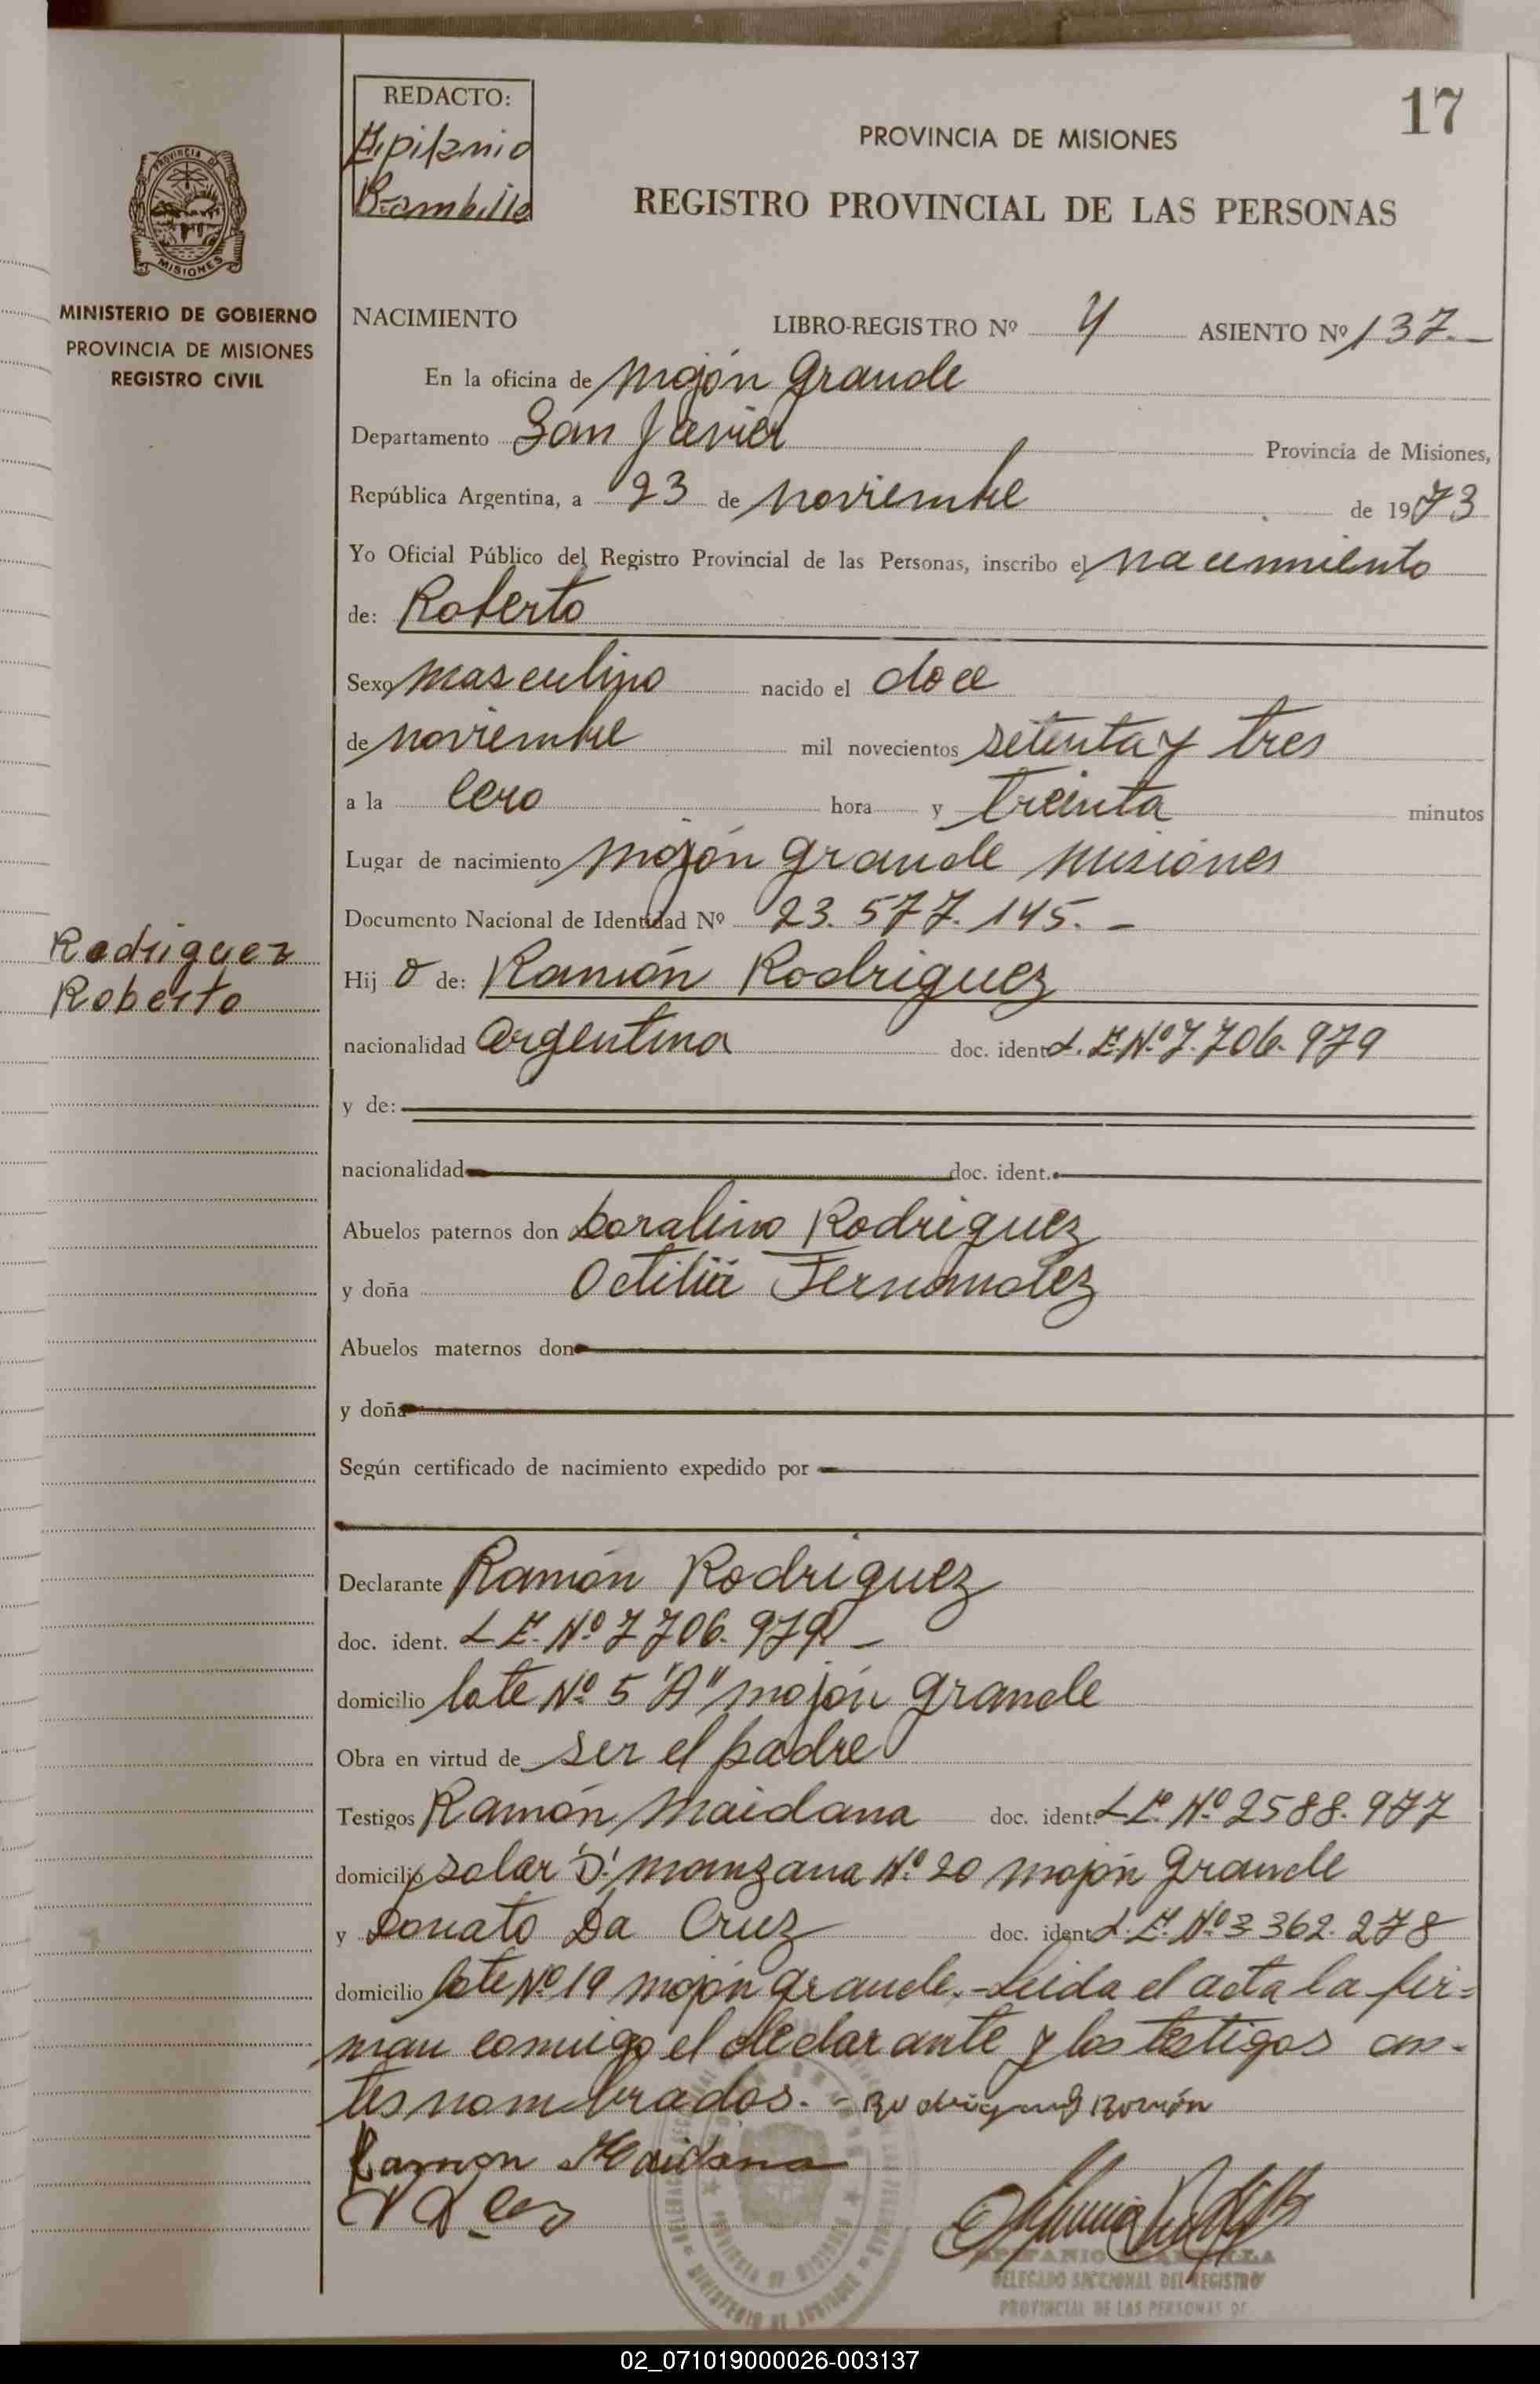 17
REDACTO:
Epifanio
Rambilla
PROVINCIA DE MISIONES
REGISTRO PROVINCIAL DE LAS PERSONAS
PROVINCIA DE
MISIONES
MINISTERIO DE GOBIERNO
PROVINCIA DE MISIONES
REGISTRO CIVIL
NACIMIENTO LIBRO-REGISTRO Nº 4 ASIENTO Nº 137.-
En la oficina de Mojón Grande
Departamento San Javier Provincia de Misiones,
República Argentina, a 23 de noviembre de 1973
Yo Oficial Público del Registro Provincial de las Personas, inscribo el nacimiento
de: Roberto
Sexo masculino nacido el doce
de noviembre mil novecientos setenta y tres
a la cero hora y treinta minutos
Lugar de nacimiento Mojón Grande Misiones
Documento Nacional de Identidad Nº 23.577.145.-
Rodriguez
Roberto
Hijo de: Ramón Rodriguez
nacionalidad Argentina doc. ident. L.E. Nº 7.706.979
y de:
nacionalidad doc. ident.
Abuelos paternos don Doralino Rodriguez
y doña Octilia Fernandez
Abuelos maternos don
y doña
Según certificado de nacimiento expedido por
Declarante Ramón Rodriguez
doc. ident. L E. Nº 7 706.979 -
domicilio lote Nº 5 "A" Mojón Grande
Obra en virtud de ser el padre
Testigos Ramón Maidana doc. ident. L E. Nº 2588.977
domicilio solar "D" manzana Nº 20 Mojón Grande
y Donato Da Cruz doc. ident. L.E. Nº 3 362.278
domicilio lote Nº 19 Mojón Grande.- Leida el acta la fir=
man comigo el declarante y los testigos an-
tes nombrados.- Rodriguez Ramón
Ramon Maidana
DELEGADO SECCIONAL DEL REGISTRO
PROVINCIAL DE LAS PERSONAS DE
02_071019000026-003137